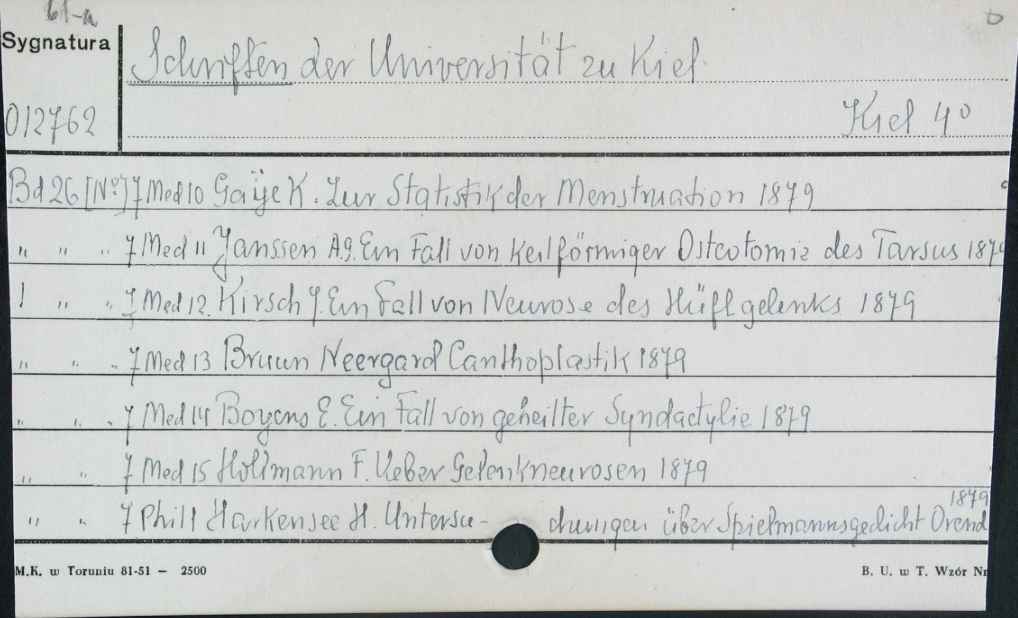 61-a
Sygnatura
Schriften der Universität zu Kiel
012762
Kiel 4°
Bd 26 [N°] 7 Med 10 Gaÿe K. Zur Statistik der Menstruation 1879
" " " 7 Med 11 Janssen A.J. Ein Fall von Keilförmiger Osteotomie des Tarsus 1879
! " " 7 Med 12. Kirsch J. Ein Fall von Neurose des Hüftgelenks 1879
" " " 7 Med 13 Bruun Neergard Canthoplastik 1879
" " " 7 Med 14 Boyens E. Ein Fall von geheilter Syndactylie 1879
" " 7 Med 15 Holtmann F. Ueber Gelenkneurosen 1879
" " 7 Phil 1 Harkensee H. Untersu- chungen über Spielmannsgedicht Orend
1879
M.K. w Toruniu 81-51 — 2500
B. U. w T. Wzór Nr